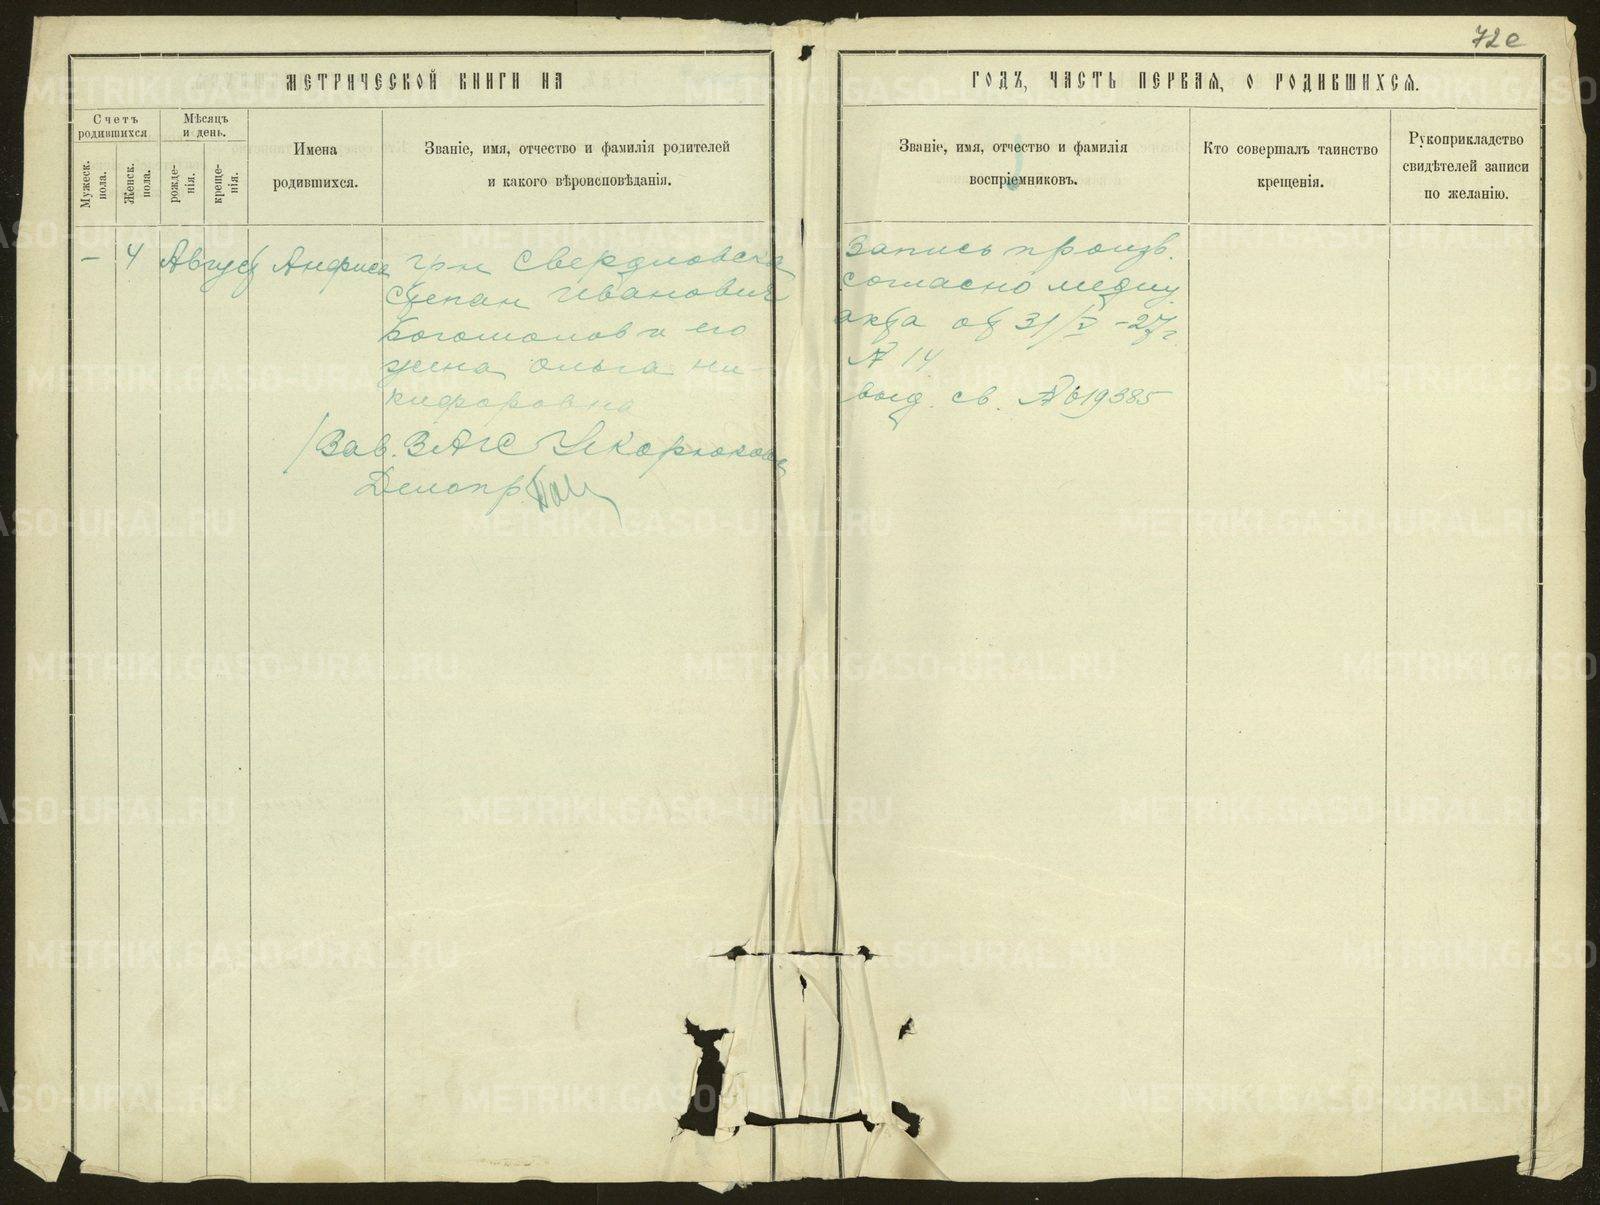 72е
МЕТРИЧЕСКОЙ КНИГИ НА
ГОДЪ, ЧАСТЬ ПЕРВАЯ, О РОДИВШИХСЯ.
Счетъ родившихся
Мѣсяцъ и день.
Мужеск. пола.
Женск. пола.
рожде-нія.
креще-нія.
Имена
родившихся.
Званіе, имя, отчество и фамилія родителей
и какого вѣроисповѣданія.
Званіе, имя, отчество и фамилія
воспріемниковъ.
Кто совершалъ таинство
крещенія.
Рукоприкладство
свидѣтелей записи
по желанію.
– 4 Август Анфиса гр-н Свердловска
Степан Иванович
Богомолов и его
жена Ольга Ни-
кифоровна
Зав. ЗАГС
Делопр.
Запись произв.
согласно медиц.
акта от 31/V -27г.
№ 14
выд. св. № 619385
METRIKI.GASO-URAL.RU